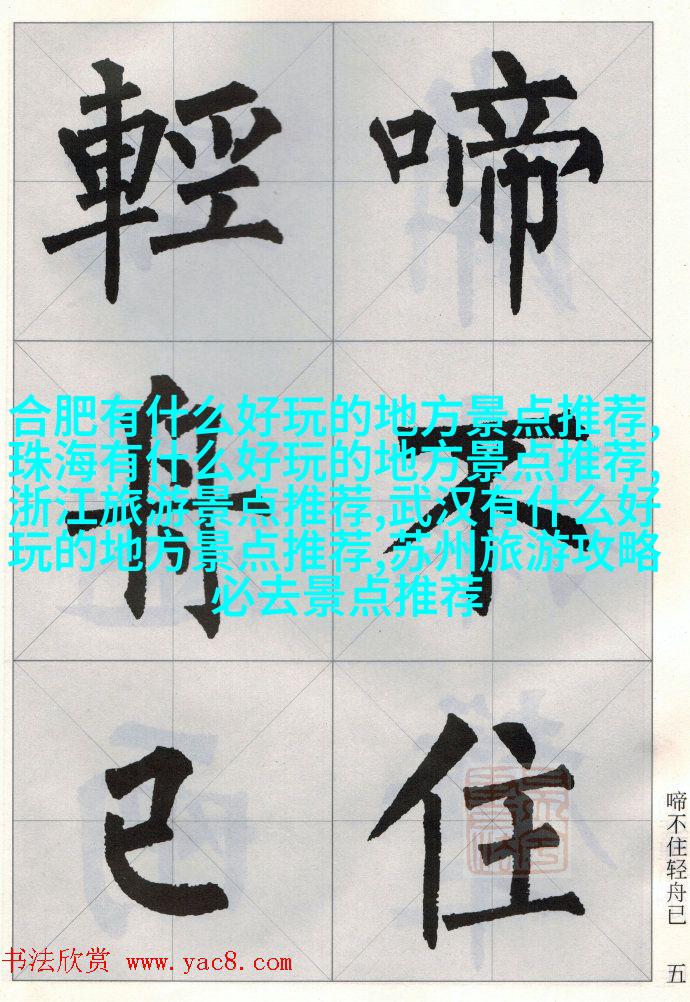 啼不住
輕舟已
合肥有什么好玩的地方景点推荐,
珠海有什么好玩的地方景点推荐,
浙江旅游景点推荐,武汉有什么好
玩的地方景点推荐,苏州旅游攻略
必去景点推荐
啼不住轻舟已
五
书法欣赏 www.yac8.com